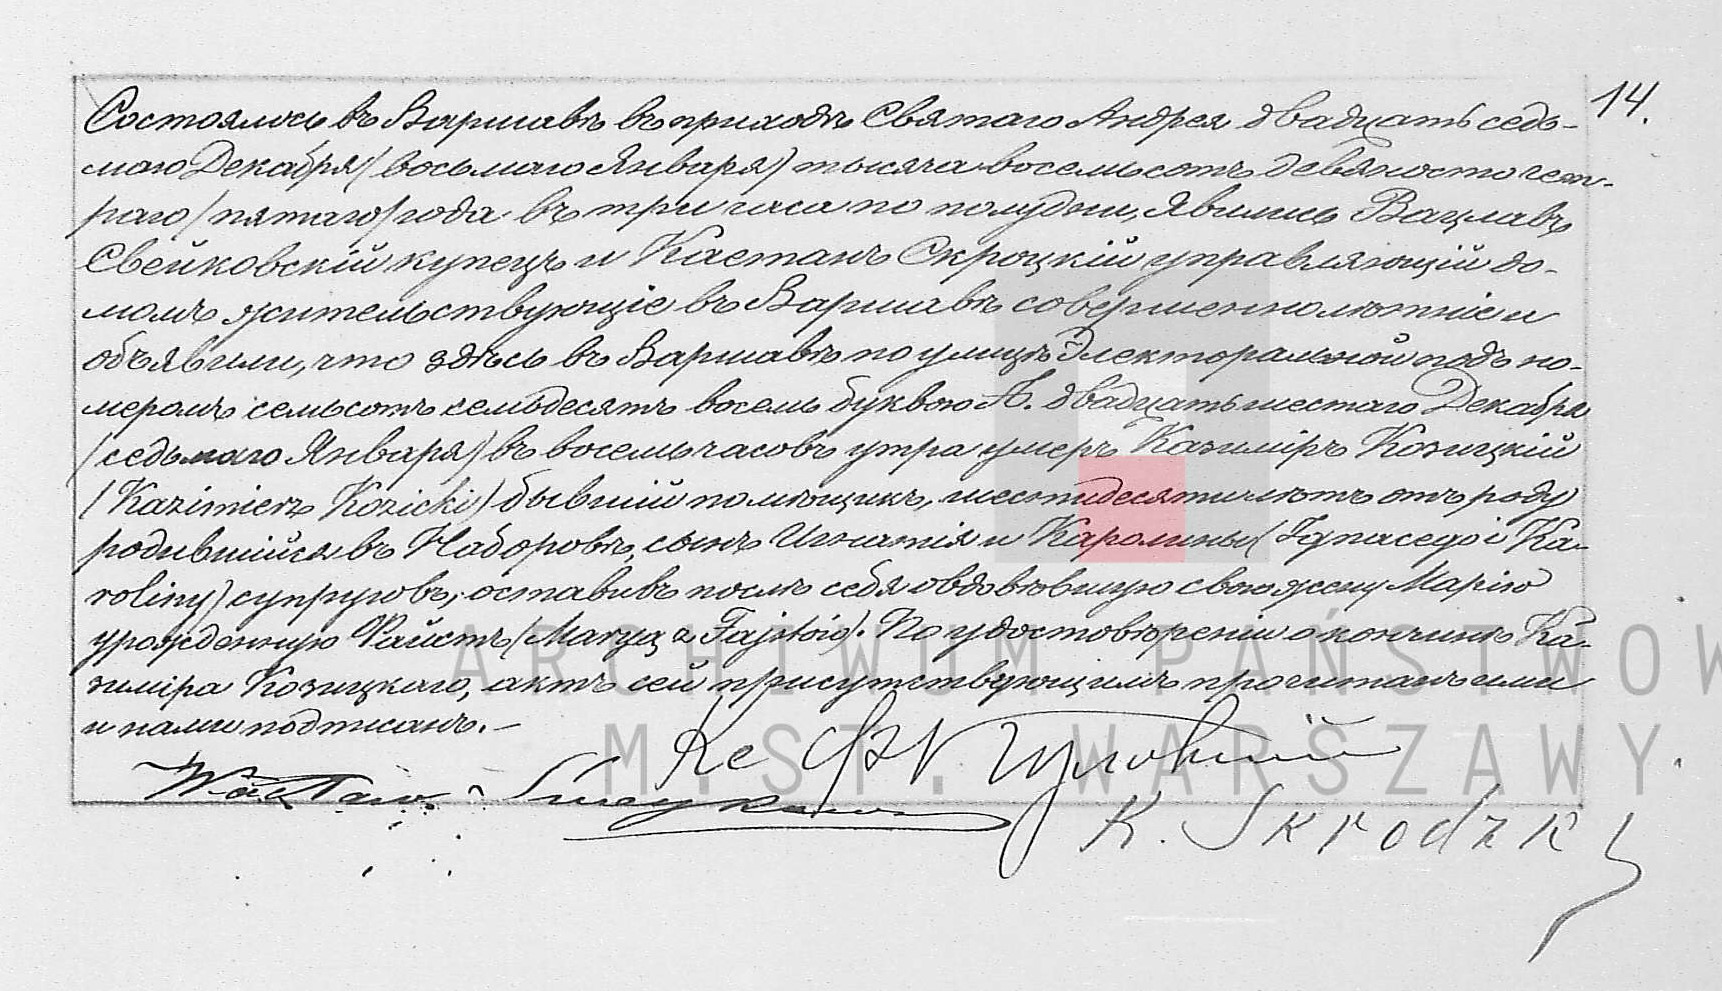 14.
Состоялось въ Варшавѣ въ приходѣ Святаго Андрея двадцать седь-
маго Декабря (восьмаго Января) тысяча восемьсотъ девяносто чет-
раго (пятаго) года въ три часа по полудни, явились Вацлавъ
Свейковскій купецъ и Каетанъ Скроцкій управляющій до-
момъ жительствующіе въ Варшавѣ совершеннолѣтніе и
объявили, что здѣсь въ Варшавѣ по улицѣ Электоральной подъ но-
меромъ семьсотъ семьдесятъ восемь буквою А. двадцать шестаго Декабря
(седьмаго Января) въ восемь часовъ утра умеръ Казиміръ Козицкій
(Kazimierz Kozicki) бывшій помѣщикъ, шестидесяти лѣтъ отъ роду
родившійся въ Наборовѣ, сынъ Игнатія и Каролины (Ignacego i Ka-
roliny) супруговъ; оставивъ послѣ себя овдовѣвшую свою жену Марію
урожденную Файстъ (Maryą z Fajstów). По удостовѣреніи о кончинѣ Ка-
зиміра Козицкаго, актъ сей присутствующимъ прочитанъ ими
и нами подписанъ.-
Wacław Sweykowski
K. Skrodzki
ARCHIWUM PAŃSTWOW
M.ST. WARSZAWY